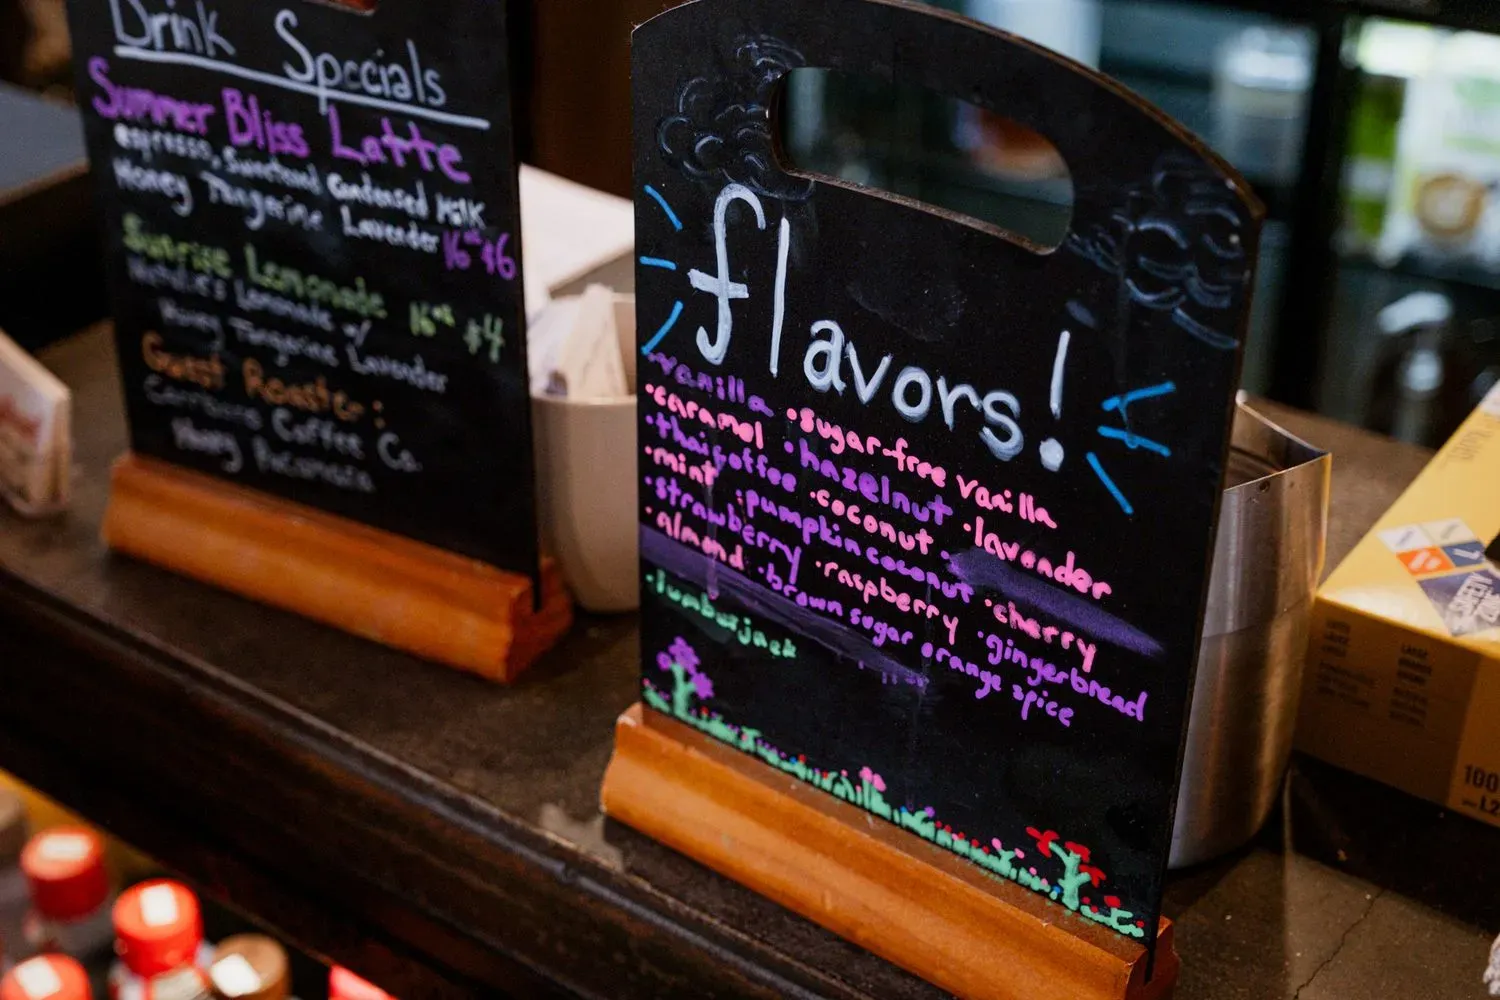 Drink Specials
Summer Bliss Latte
espresso, Sweetened Condensed Milk
Honey Tangerine Lavender 16oz $6
Sunrise Lemonade 16oz $4
Natalie's Lemonade w/
Honey Tangerine Lavender
Guest Roaster:
Coffee Co.
flavors!
•vanilla •sugar-free vanilla
•caramel •hazelnut •lavender
•thai coffee •coconut
•mint •pumpkin coconut •cherry
•strawberry •raspberry •gingerbread
•almond •brown sugar orange spice
•lumburjack
100